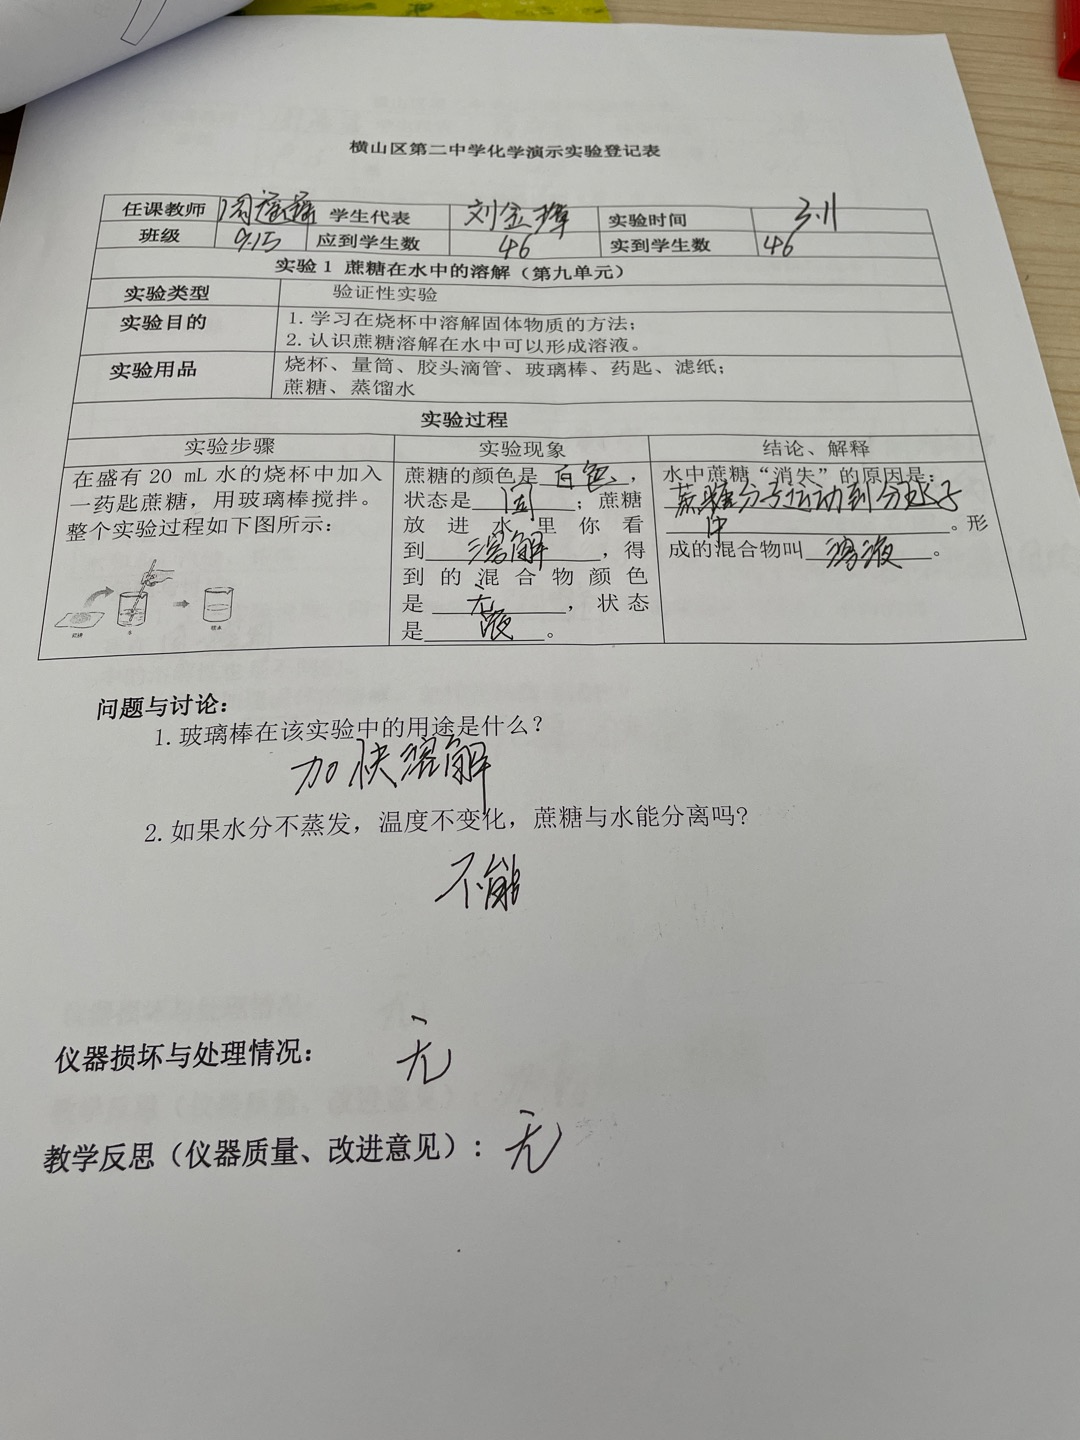 横山区第二中学化学演示实验登记表
任课教师 学生代表 刘金璋 实验时间 3.11
班级 9.15 应到学生数 46 实到学生数 46
实验1 蔗糖在水中的溶解（第九单元）
实验类型 验证性实验
实验目的 1.学习在烧杯中溶解固体物质的方法；
2.认识蔗糖溶解在水中可以形成溶液。
实验用品 烧杯、量筒、胶头滴管、玻璃棒、药匙、滤纸；
蔗糖、蒸馏水
实验过程
实验步骤 实验现象 结论、解释
在盛有 20 mL 水的烧杯中加入
一药匙蔗糖，用玻璃棒搅拌。
整个实验过程如下图所示：
蔗糖的颜色是白色，
状态是固；蔗糖
放进水里你看
到溶解，得
到的混合物颜色
是无，状态
是液。
水中蔗糖“消失”的原因是：
蔗糖分子运动到分子
中。形
成的混合物叫溶液。
问题与讨论：
1.玻璃棒在该实验中的用途是什么？
加快溶解
2.如果水分不蒸发，温度不变化，蔗糖与水能分离吗？
不能
仪器损坏与处理情况： 无
教学反思（仪器质量、改进意见）： 无